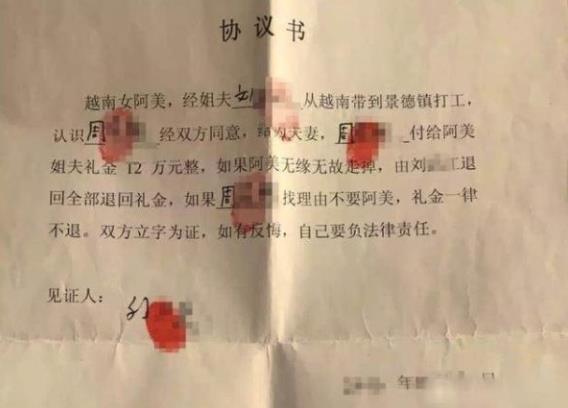 协议书
越南女阿美，经姐夫刘 从越南带到景德镇打工，
认识周 经双方同意，结为夫妻，周 付给阿美
姐夫礼金 12 万元整，如果阿美无缘无故走掉，由刘 工退
回全部退回礼金，如果周 找理由不要阿美，礼金一律
不退。双方立字为证，如有反悔，自己要负法律责任。
见证人：
年